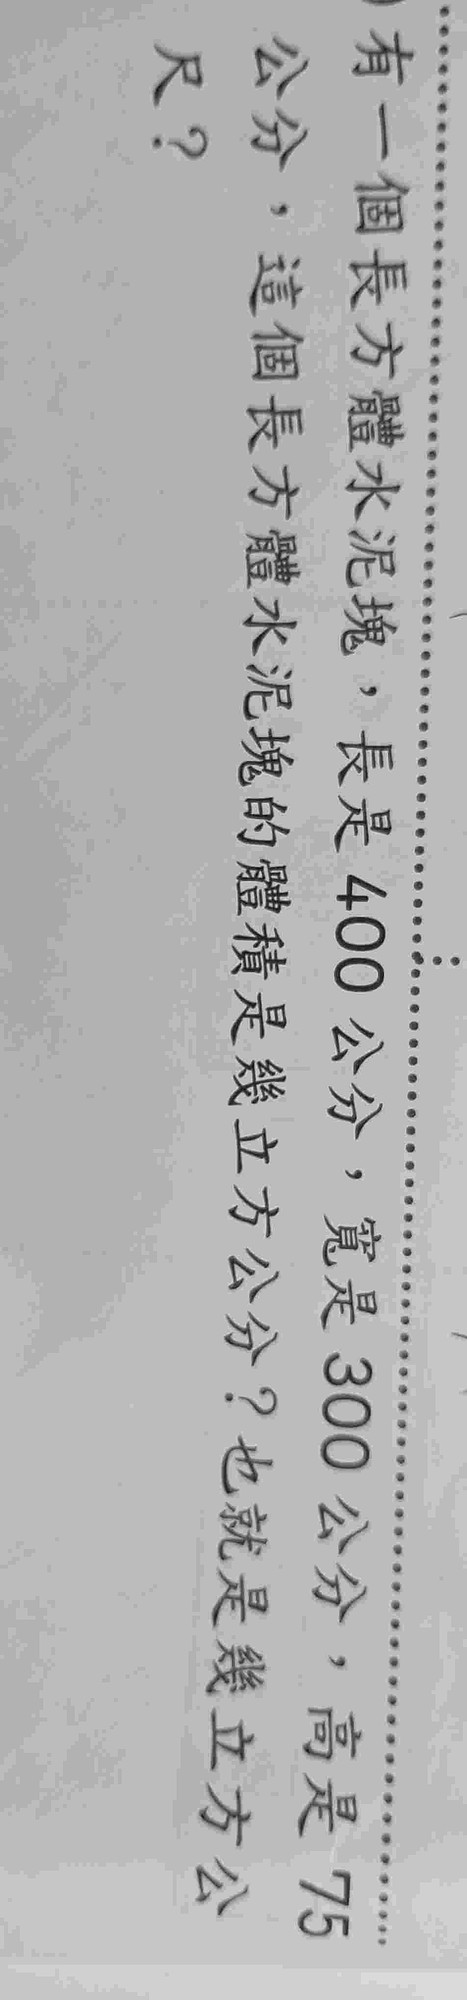 )有一個長方體水泥塊，長是400公分，寬是300公分，高是75
公分，這個長方體水泥塊的體積是幾立方公分？也就是幾立方公
尺？